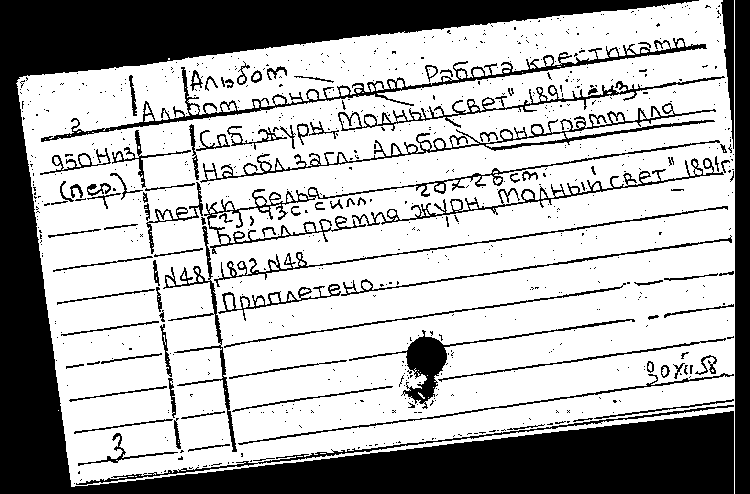 Альбом
2 Альбом монограмм Работа крестиками
Спб., журн. „Модный свет", 1891 ценз.
950 Низ На обл. загл.: Альбом монограмм для
(пер.) метки белья.
[2], 93 с. с илл. 20×28 см.
Беспл. премия журн. „Модный свет" 1891г,
N48, 1892, N48
Приплетено...
30 XII 58
3